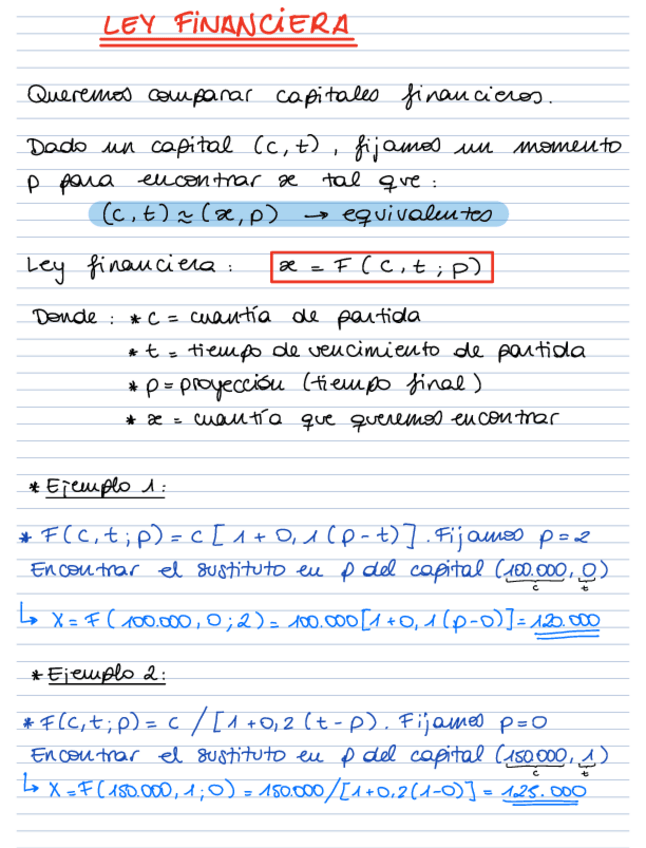 LEY FINANCIERA
Queremos comparar capitales financieros.
Dado un capital (c,t), fijamos un momento
p para encontrar x tal que:
(c,t) ≈ (x,p) → equivalentes
Ley financiera: x = F(c,t;p)
Donde: * c = cuantía de partida
* t = tiempo de vencimiento de partida
* p = proyección (tiempo final)
* x = cuantía que queremos encontrar
* Ejemplo 1:
* F(c,t;p) = c [1+0,1(p-t)]. Fijamos p=2
Encontrar el sustituto en p del capital (100.000, 0)
c t
↳ X = F(100.000, 0; 2) = 100.000[1+0,1(p-0)] = 120.000
* Ejemplo 2:
* F(c,t;p) = c /[1+0,2(t-p). Fijamos p=0
Encontrar el sustituto en p del capital (150.000, 1)
c t
↳ X = F(150.000, 1; 0) = 150.000/[1+0,2(1-0)] = 125.000